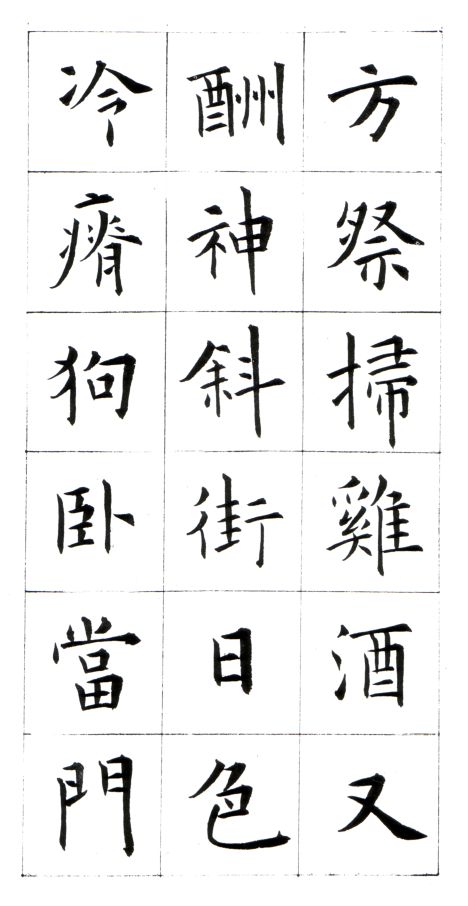 方祭掃雞酒又
酬神斜街日色
冷瘠狗卧當門